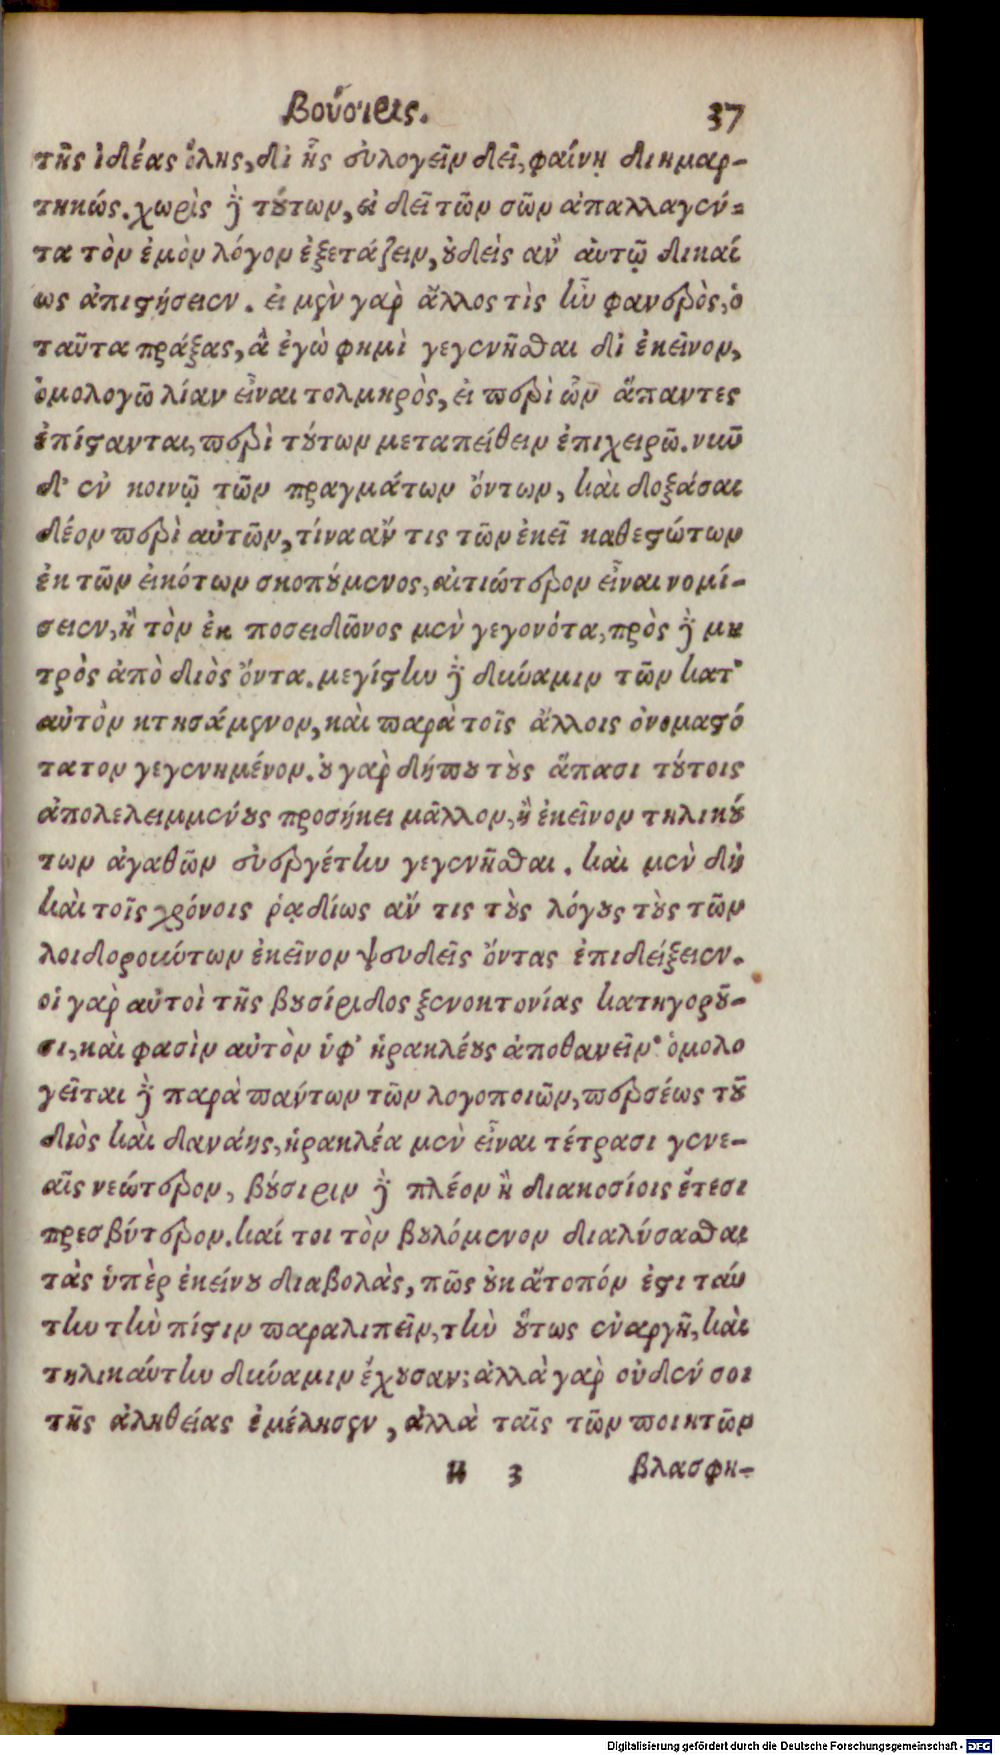 Βούσιρις. 37
τῆς ἰδέας ὅλης, δι' ἧς εὐλογεῖν δεῖ, φαίνῃ διημαρ-
τηκώς. χωρὶς δὲ τούτων, εἰ δεῖ τῶν σῶν ἀπαλλαγέν-
τα τὸν ἐμὸν λόγον ἐξετάζειν, οὐδεὶς ἂν αὐτῷ δικαί
ως ἀπιστήσειεν. εἰ μὲν γὰρ ἄλλος τὶς ἦν φανερὸς, ὁ
ταῦτα πράξας, ἃ ἐγὼ φημὶ γεγενῆσθαι δι' ἐκεῖνον,
ὁμολογῶ λίαν εἶναι τολμηρὸς, εἰ περὶ ὧν ἅπαντες
ἐπίστανται, περὶ τούτων μεταπείθειν ἐπιχειρῶ. νῦν
δ' ἐν κοινῷ τῶν πραγμάτων ὄντων, καὶ δοξάσαι
δέον περὶ αὐτῶν, τίνα ἄν τις τῶν ἐκεῖ καθεστώτων
ἐκ τῶν εἰκότων σκοπούμενος, αἰτιώτερον εἶναι νομί-
σειεν, ἢ τὸν ἐκ ποσειδῶνος μὲν γεγονότα, πρὸς δὲ μη
τρὸς ἀπὸ διὸς ὄντα. μεγίστην δὲ δύναμιν τῶν κατ'
αὐτὸν κτησάμενον, καὶ παρὰ τοῖς ἄλλοις ὀνομαστό
τατον γεγενημένον. οὐ γὰρ δήπου τοὺς ἅπασι τούτοις
ἀπολελειμμένους προσήκει μᾶλλον, ἢ ἐκεῖνον τηλικού
των ἀγαθῶν εὐεργέτην γεγενῆσθαι. καὶ μὲν δὴ
καὶ τοῖς χρόνοις ῥᾳδίως ἄν τις τοὺς λόγους τοὺς τῶν
λοιδορούντων ἐκεῖνον ψευδεῖς ὄντας ἐπιδείξειεν.
οἱ γὰρ αὐτοὶ τῆς βουσίριδος ξενοκτονίας κατηγοροῦ-
σι, καὶ φασὶν αὐτὸν ὑφ' ἡρακλέους ἀποθανεῖν· ὁμολο
γεῖται δὲ παρὰ πάντων τῶν λογοποιῶν, περσέως τοῦ
διὸς καὶ δανάης, ἡρακλέα μὲν εἶναι τέτρασι γενε-
αῖς νεώτερον, βούσιριν δὲ πλέον ἢ διακοσίοις ἔτεσι
πρεσβύτερον. καί τοι τὸν βουλόμενον διαλύσασθαι
τὰς ὑπὲρ ἐκείνου διαβολὰς, πῶς οὐκ ἄτοπόν ἐστι ταύ
την τὴν πίστιν παραλιπεῖν, τὴν οὕτως ἐναργῆ, καὶ
τηλικαύτην δύναμιν ἔχουσαν; ἀλλὰ γὰρ οὐδέν σοι
τῆς ἀληθείας ἐμέλησεν, ἀλλὰ ταῖς τῶν ποιητῶν
κ 3 βλασφη-
Digitalisierung gefördert durch die Deutsche Forschungsgemeinschaft - DFG